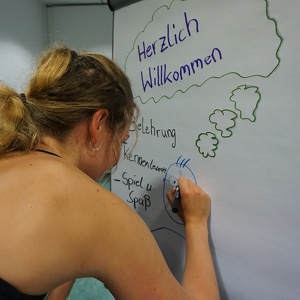 Herzlich
Willkommen
Belehrung
Kennenlernen
- Spiel u
Spaß